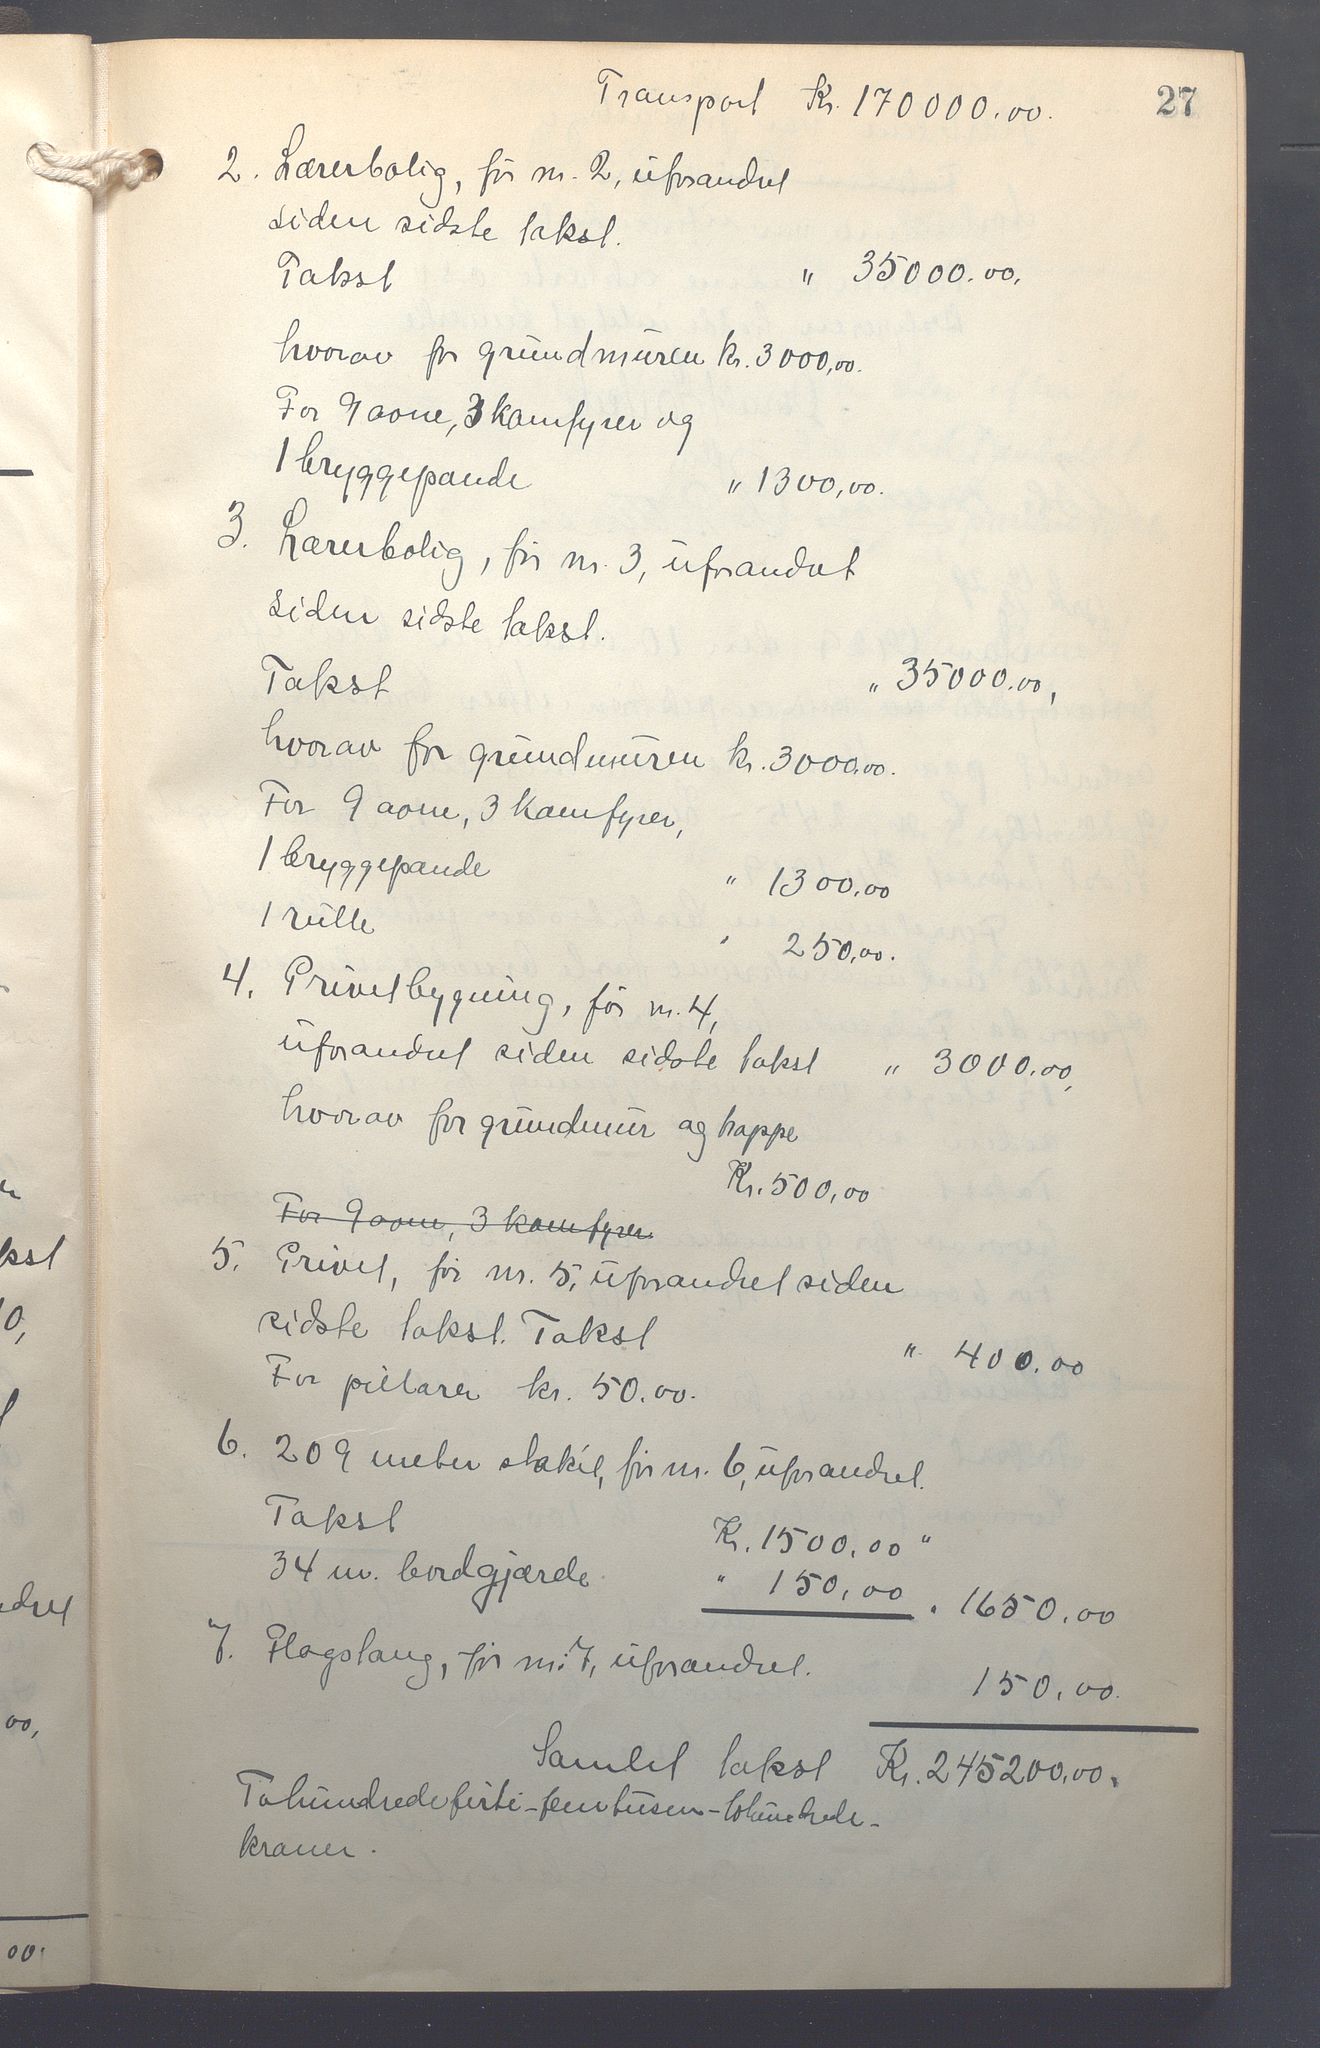 Transport Kr. 170000.00.
27
2. Lærerbolig, før nr. 2, uforandret
siden sidste takst.
Takst " 35000.00.
hvorav for grundmuren kr. 3000,00.
For 9 aone, 3 komfyrer og
1 bryggepande " 1300,00.
3. Lærerbolig, før nr. 3, uforandret
siden sidste takst.
Takst " 35000.00,
hvorav for grundmuren kr. 3000.00.
For 9 aone, 3 komfyrer,
1 bryggepande " 1300.00
1 rulle " 250,00.
4. Privetbygning, før nr. 4,
uforandret siden sidste takst " 3000.00,
hvorav for grundmur og trappe
Kr. 500,00
For 9 aone, 3 komfyrer
5. Privet, før nr. 5, uforandret siden
sidste takst. Takst " 400.00
For pillarer kr. 50.00.
6. 209 meter stakit, før nr. 6, uforandret.
Takst Kr. 1500.00 "
34 m. bordgjærde " 150,00 " 1650.00
7. Flagstang, før nr. 7, uforandret. 150.00.
Samlet takst Kr. 245200.00.
Tohundredeførti-femtusen-tohundrede-
kroner.
kst
0,
dret
00,
00.